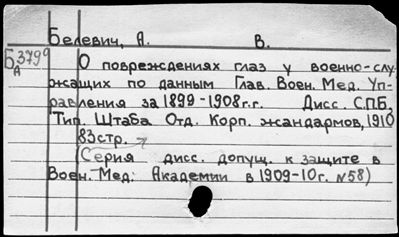 Белевич, А. В.
Б 3799
А
О повреждениях глаз у военно-слу-
жащих по данным Глав. Воен. Мед. Уп-
равления за 1899-1908г.г. Дисс. С.П.Б,
Тип. Штаба Отд. Корп. жандармов, 1910
83стр.
(Серия дисс. допущ. к защите в
Воен. Мед: Академии в 1909-10г. №58)